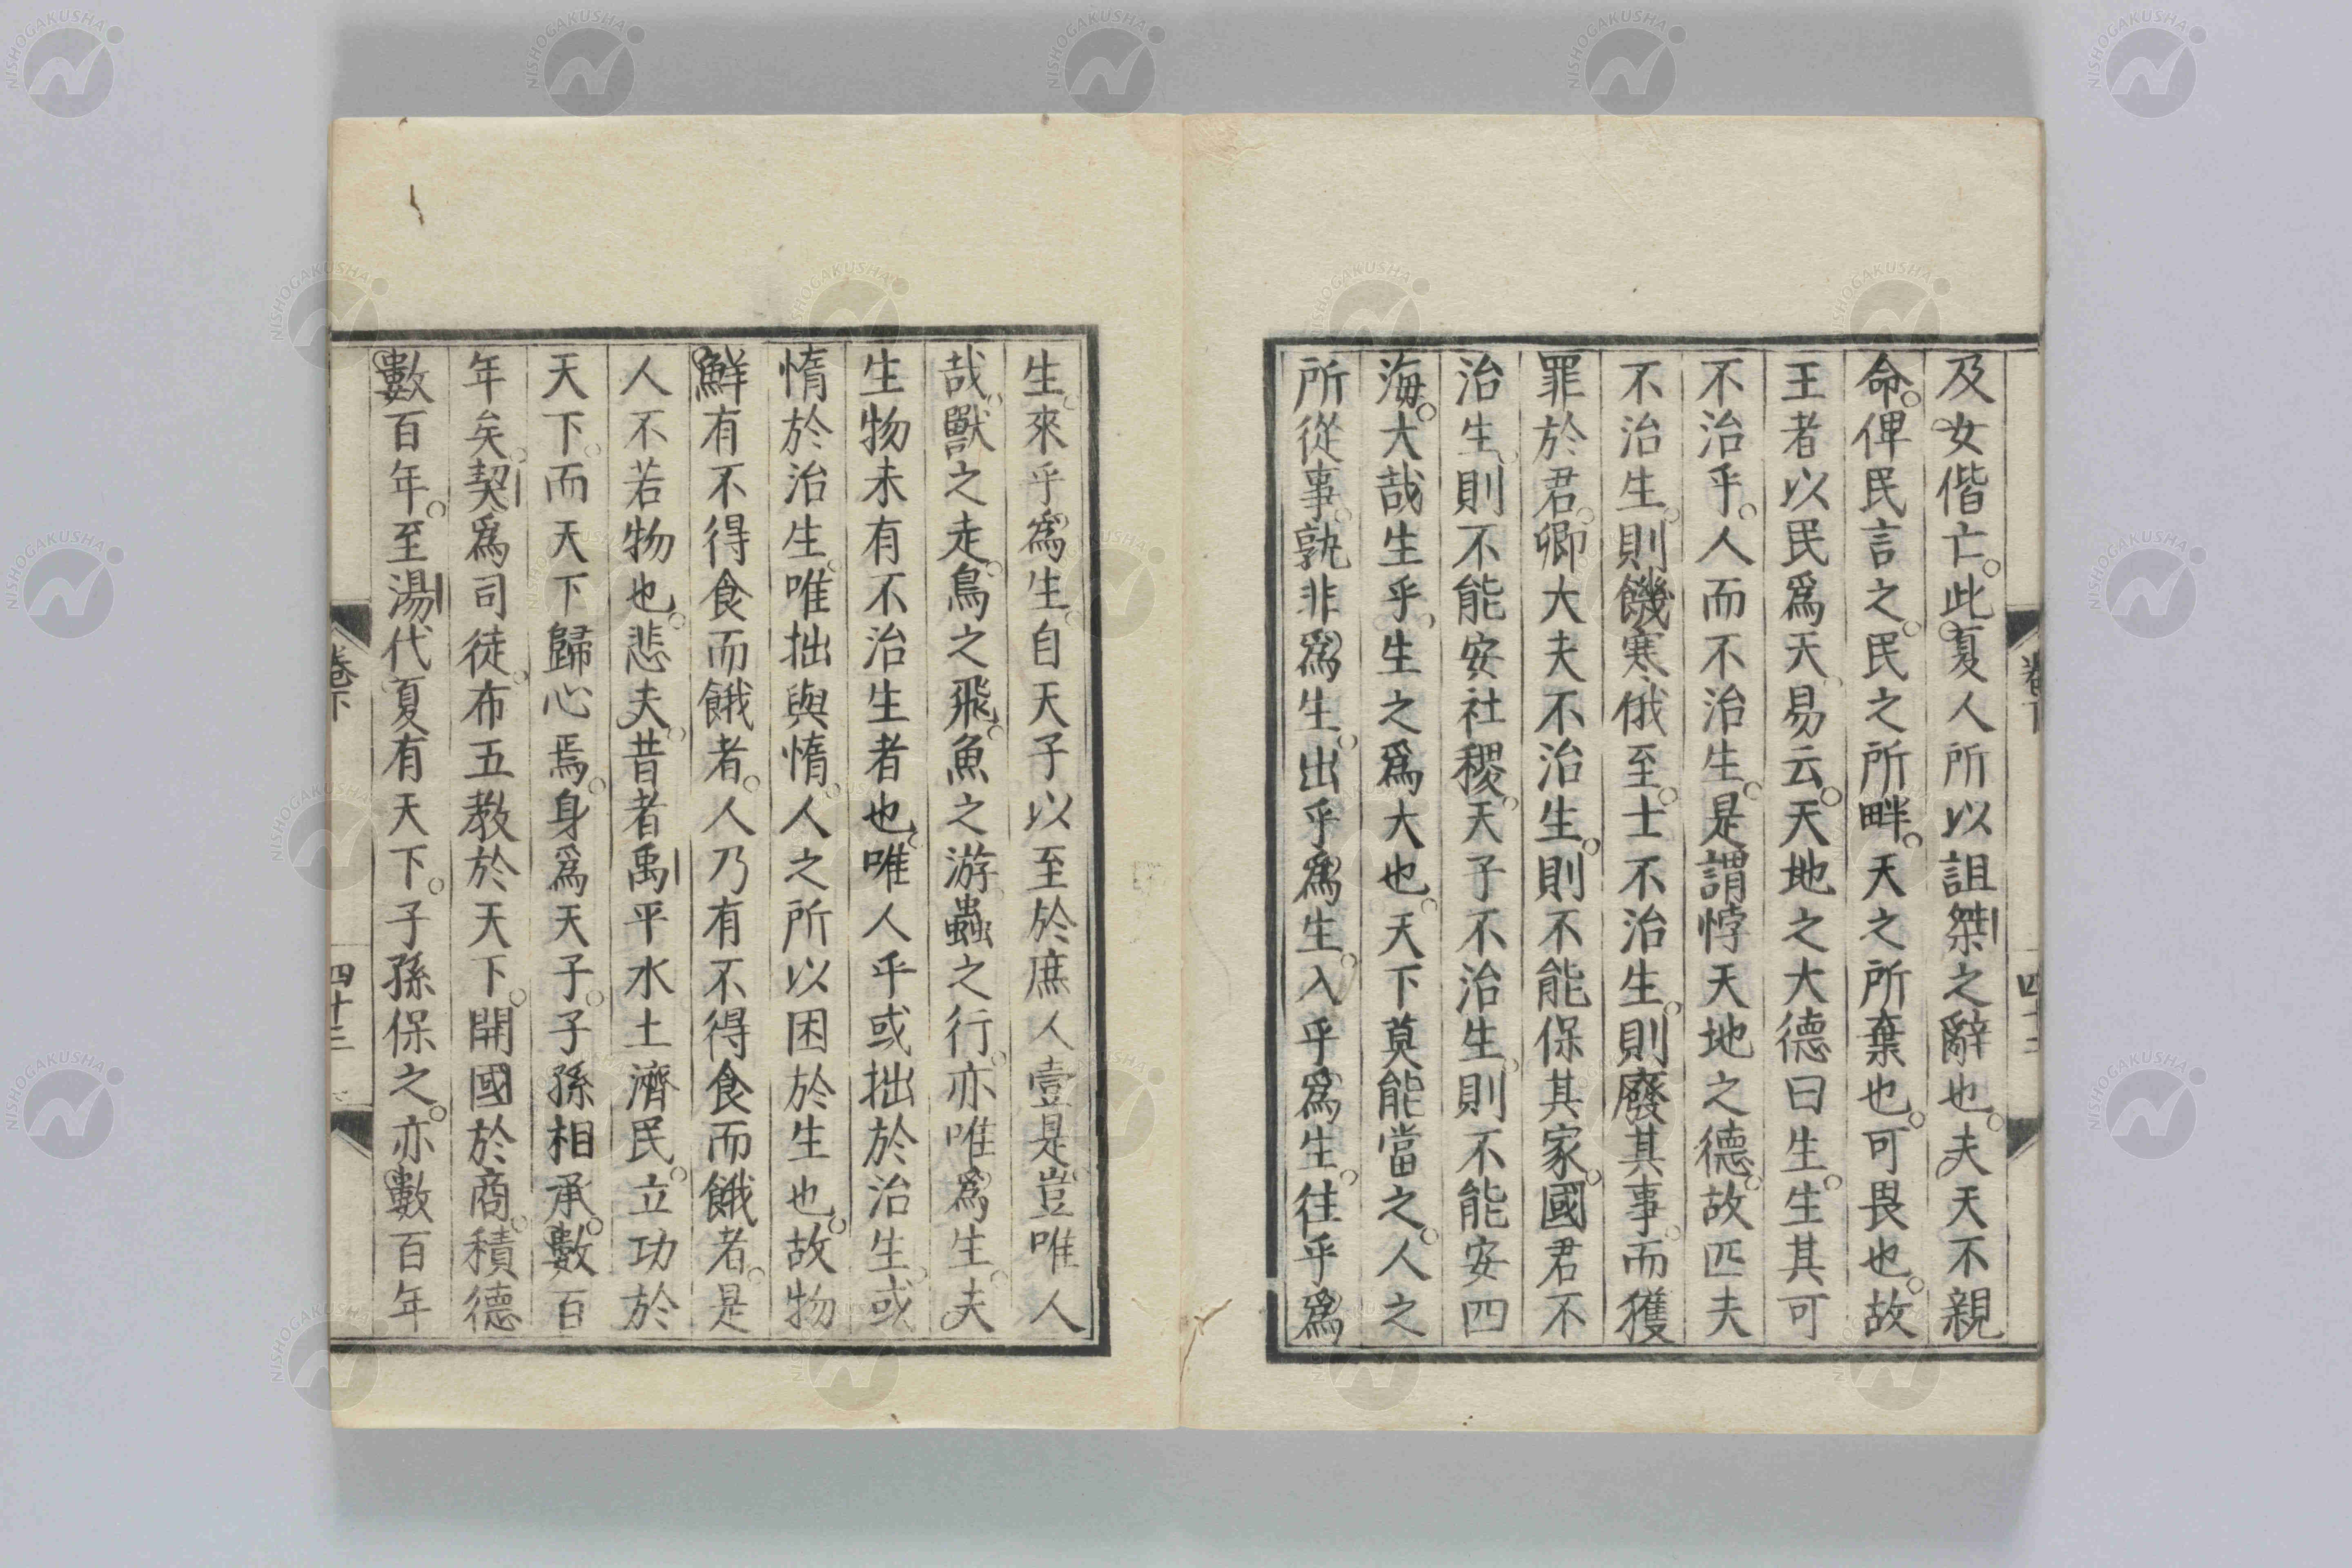 及女偕亡。此夏人所以詛桀之辭也。夫天不親
命。俾民言之。民之所畔。天之所棄也。可畏也。故
王者以民爲天。易云。天地之大德曰生。生其可
不治乎。人而不治生。是謂悖天地之德。故匹夫
不治生。則饑寒俄至。士不治生。則廢其事。而獲
罪於君。卿大夫不治生。則不能保其家。國君不
治生。則不能安社稷。天子不治生。則不能安四
海。大哉生乎。生之爲大也。天下莫能當之。人之
所從事。孰非爲生。出乎爲生。入乎爲生。往乎爲
生。來乎爲生。自天子以至於庶人壹是。豈唯人
哉。獸之走。鳥之飛。魚之游。蟲之行。亦唯爲生。夫
生物未有不治生者也。唯人乎或拙於治生。或
惰於治生。唯拙與惰。人之所以困於生也。故物
鮮有不得食而餓者。人乃有不得食而餓者。是
人不若物也。悲夫。昔者禹平水土濟民。立功於
天下。而天下歸心焉。身爲天子。子孫相承。數百
年矣。契爲司徒。布五教於天下。開國於商。積德
數百年。至湯代夏有天下。子孫保之。亦數百年
卷下
四十三
NISHOGAKUSHA